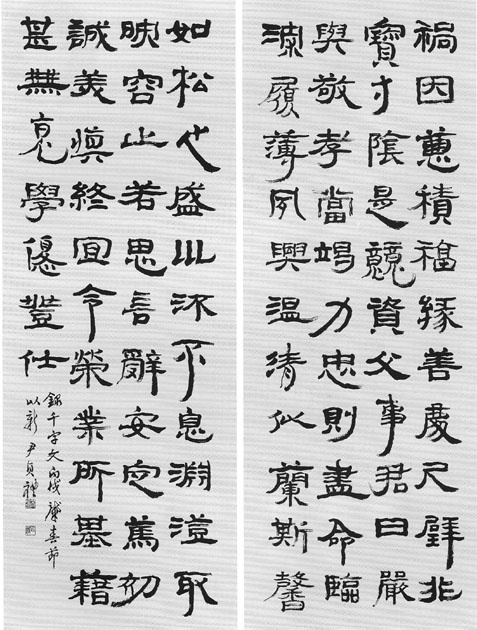 禍因惡積福緣善慶尺璧非
寶寸陰是競資父事君曰嚴
與敬孝當竭力忠則盡命臨
深履薄夙興溫清似蘭斯馨
如松之盛川流不息淵澄取
映容止若思言辭安定篤初
誠美慎終宜令榮業所基藉
甚無竟學優登仕
錄千字文丙戌春節
以新尹貞禮